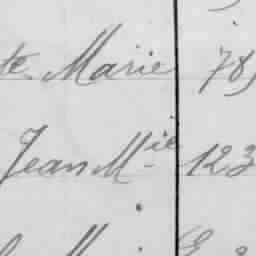 te Marie 78
Jean M^ie 123